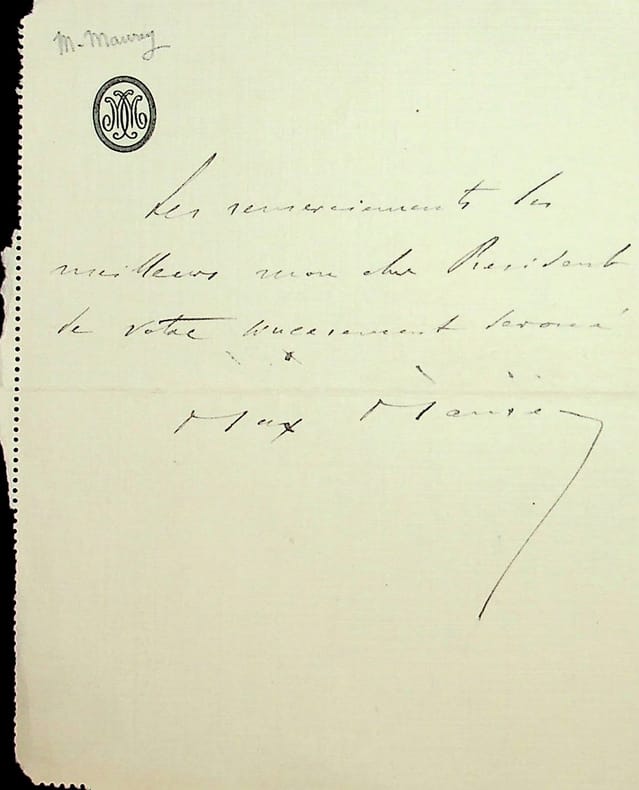 M. Maurey
MM
Les remerciements les
meilleurs mon cher President
de votre sincerement devoué
Max Maurey